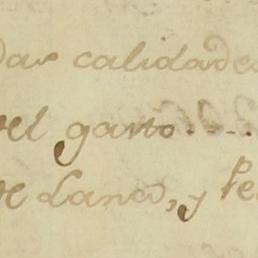 das calidades
del gasto....
de Lana, y Pe